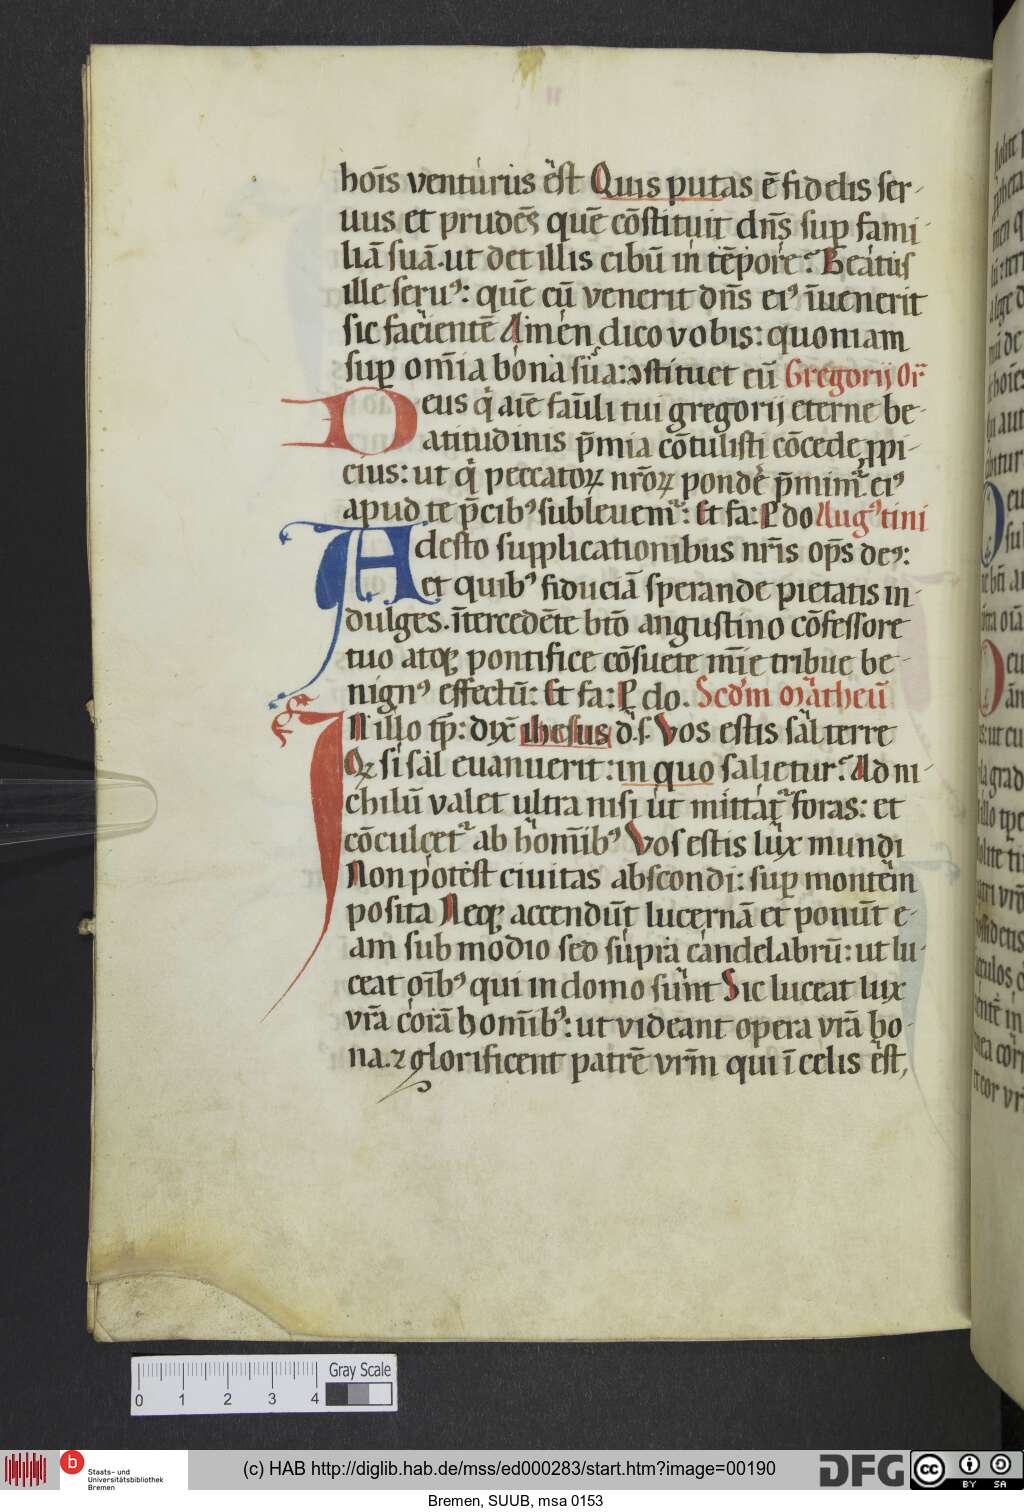 hoīs venturus est Quis putas ē fidelis ser-
uus et prudēs quē cōstituit dn̄s sup fami-
liā suā. ut det illis cibū in tēpore? Beatus
ille seruꝰ: quē cū venerit dn̄s eiꝰ īuenerit
sic facientē Amen dico vobis: quoniam
sup om̄ia bona sua: ꝯstituet eū Gregorij Or̄
Deus q̄ aīe fam̄li tui gregorij eterne be-
atitudinis p̄mia cōtulisti cōcede ꝓpi-
cius: ut q̄ peccatoꝝ nr̄oꝝ ponde p̄mimr eiꝰ
apud te p̄cibꝰ subleuemr: Et fa: P do Augꝰtini
Adesto supplicationibus nr̄is op̄s deꝰ:
et quibꝰ fiduciā sperande pietatis in-
dulges. ītercedēte btō augustino cōfessore
tuo atqꝫ pontifice cōsuete m̄ie tribue be-
nignꝰ effectū: Et fa: P do. Scd̄m Matheū
IN illo tp̄: dix̄ ihesus d. s. Vos estis sal terre
Qꝝ si sal euanuerit: in quo salietur? Ad ni-
chilū valet ultra nisi ut mittatr foras: et
cōculcetr ab hom̄ibꝰ Vos estis lux mundi
Non potest ciuitas abscondi: sup montem
posita Neqꝫ accendūt lucernā et ponūt e-
am sub modio sed supra candelabrū: ut lu-
ceat oībꝰ qui in domo sunt Sic luceat lux
vr̄a corā hom̄ibꝰ: ut videant opera vr̄a bo-
na. ⁊ glorificent patrē vr̄m qui ī celis est,
0 1 2 3 4
Gray Scale
b
Staats- und
Universitätsbibliothek
Bremen
(c) HAB http://diglib.hab.de/mss/ed000283/start.htm?image=00190
DFG
cc BY SA
Bremen, SUUB, msa 0153